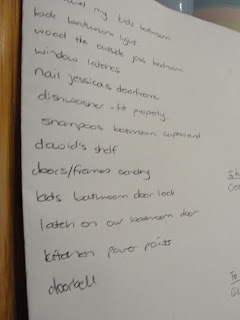 my kids bathroom
bathroom light
wood the outside bedroom
window latches
nail jessicas doorframe
dishwasher - fit properly.
shampoos bathroom cupboard
david's shelf
doors/frames sanding
kids bathroom door lock
latch on our bathroom door
kitchen power points
doorbell
To